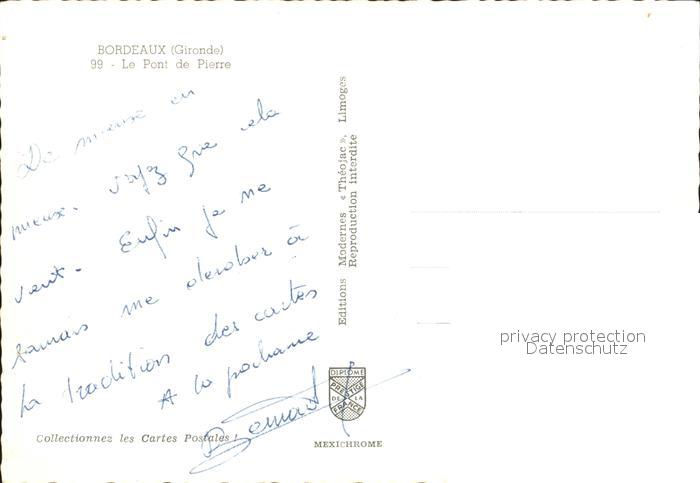 BORDEAUX (Gironde)
99 - Le Pont de Pierre
De mieux en
mieux. que cela
vaut. Enfin je ne
me derober à
la tradition des cartes
A la prochaine
Bernard
Collectionnez les Cartes Postales !
Editions Modernes « Théojac », Limoges
Reproduction interdite
DIPLOME
PRESTIGE
DE LA
FRANCE
MEXICHROME
privacy protection
Datenschutz